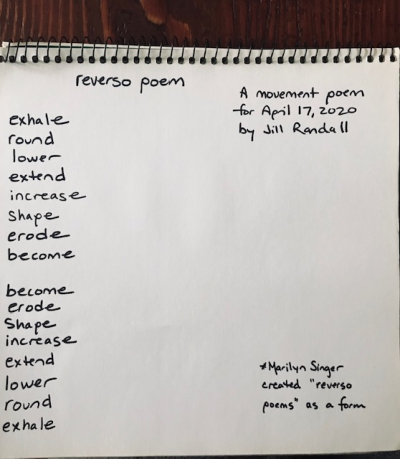 reverso poem
A movement poem
for April 17, 2020
by Jill Randall
exhale
round
lower
extend
increase
Shape
erode
become
become
erode
Shape
increase
extend
lower
round
exhale
*Marilyn Singer
created "reverso
poems" as a form